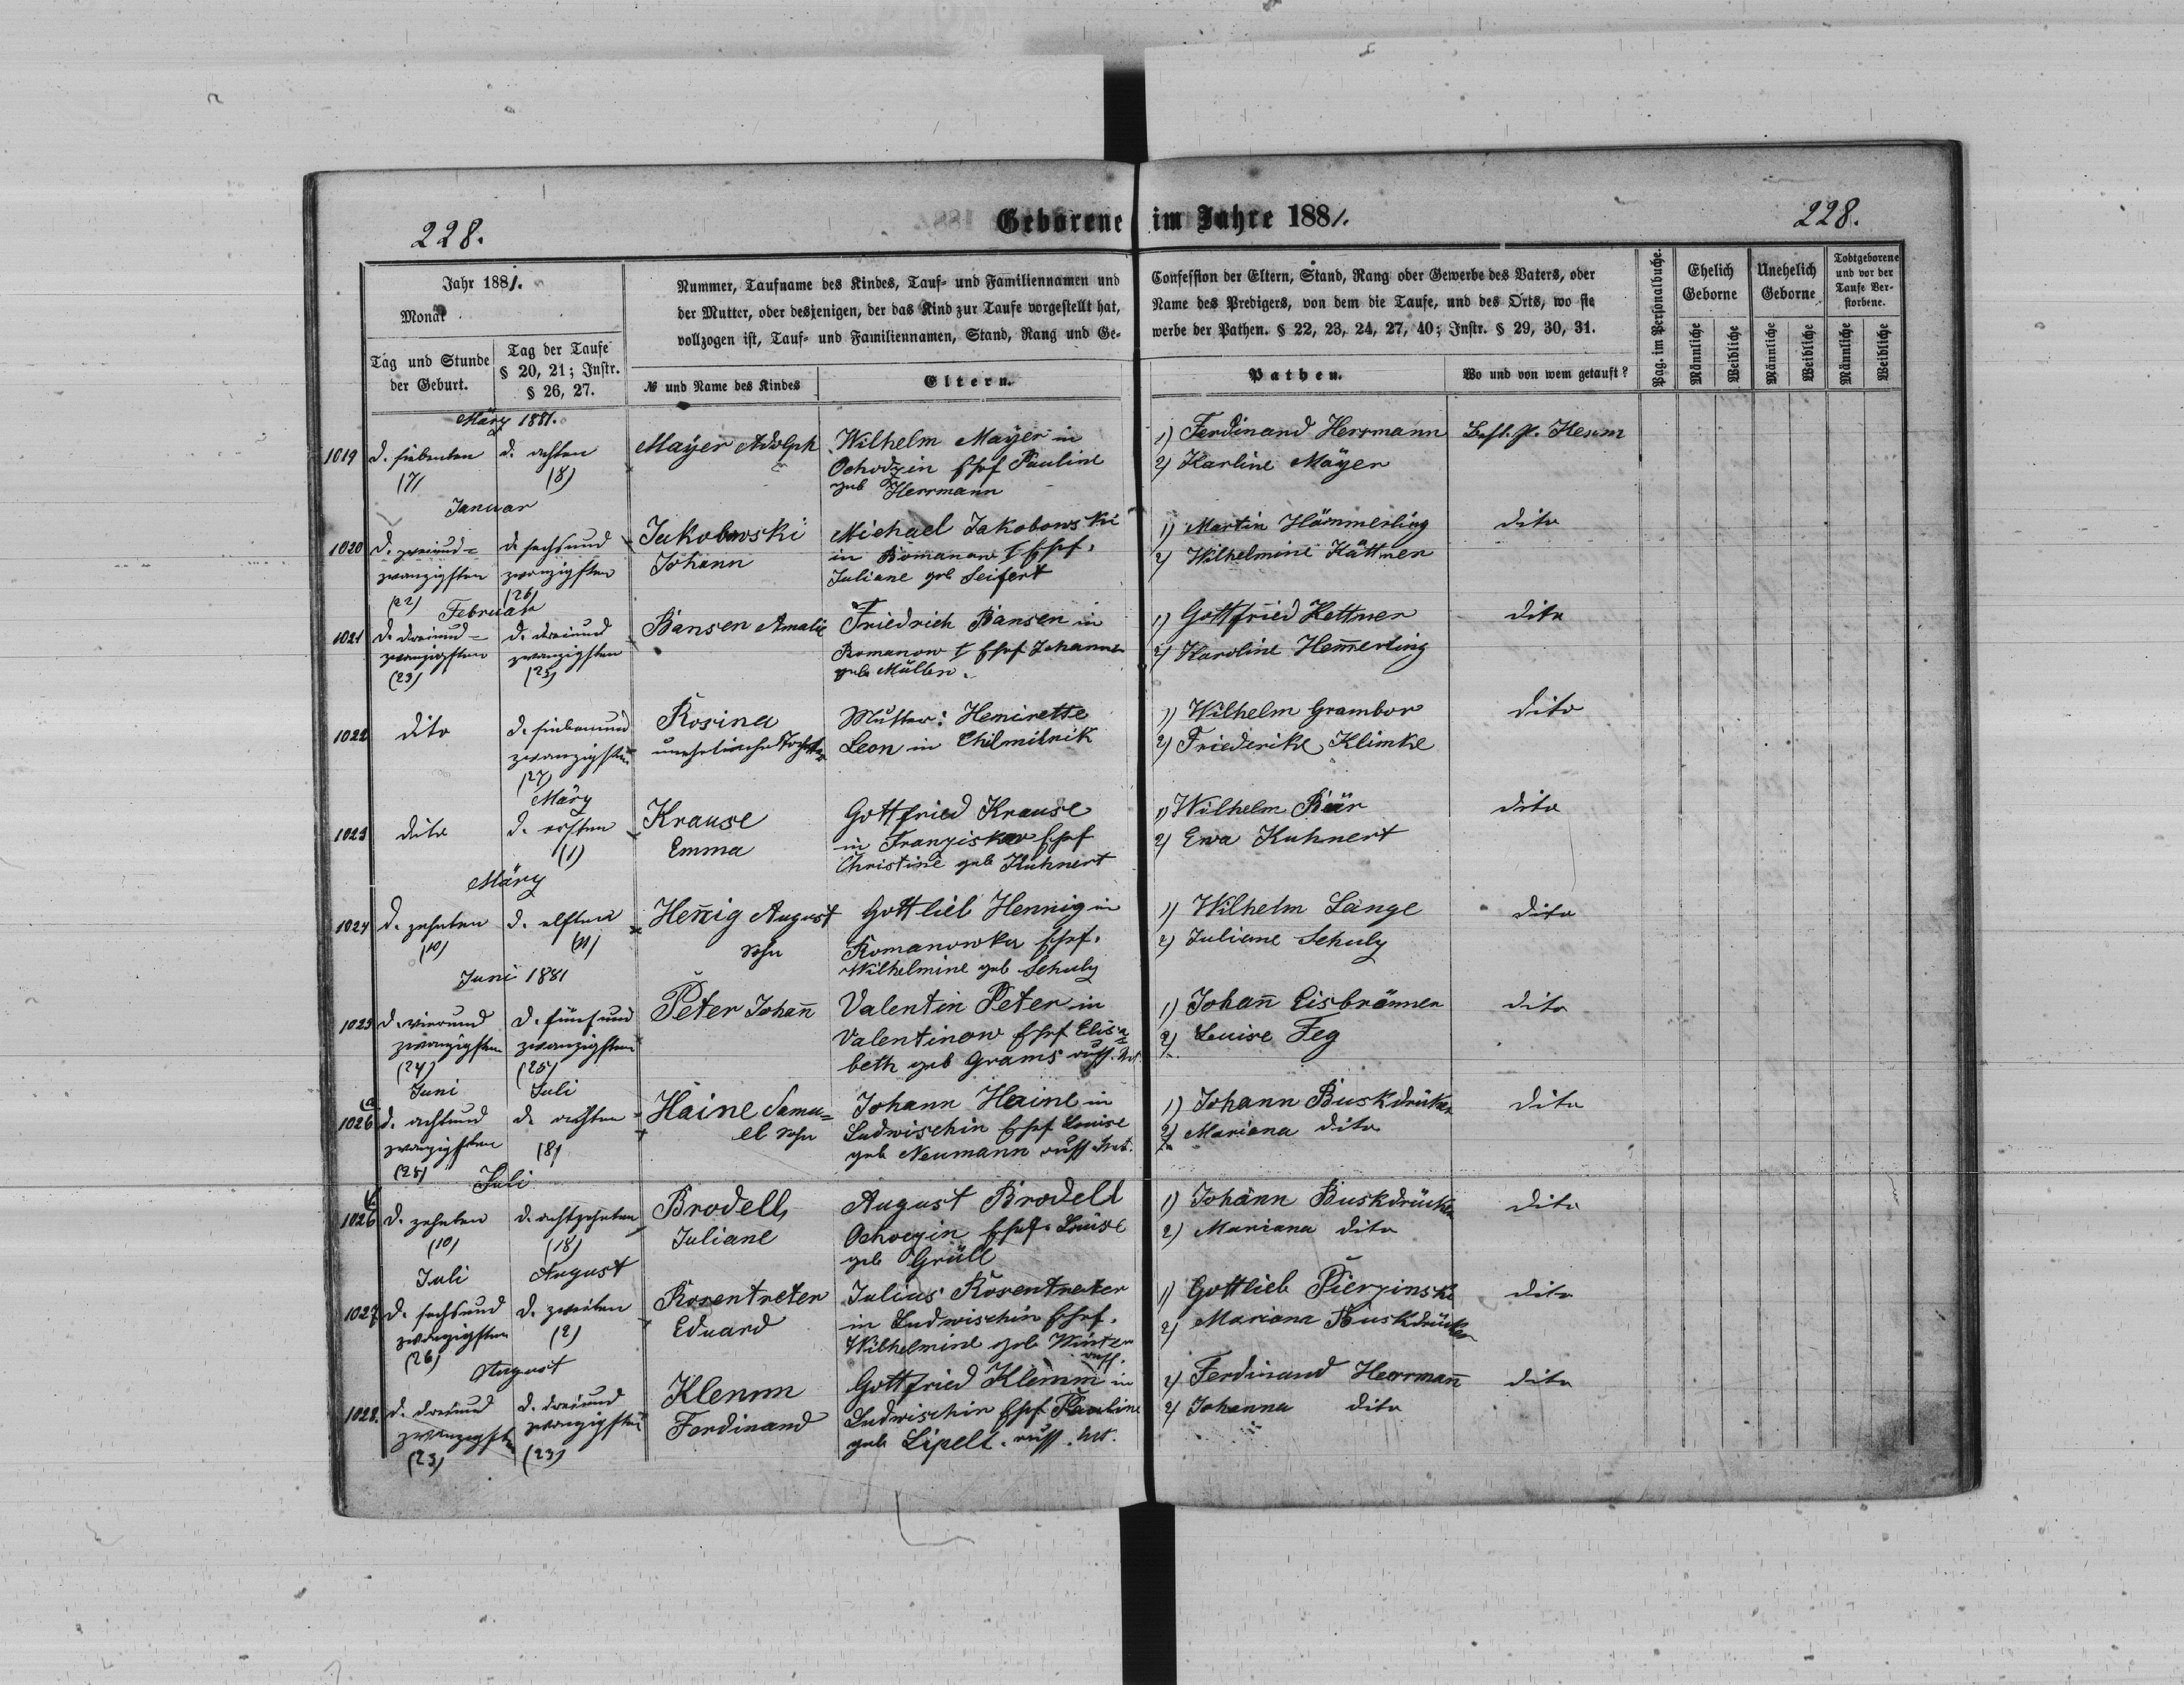 228.
Geborene im Jahre 1881.
228.
Jahr 1881.
Monat
Tag und Stunde der Geburt.
Tag der Taufe § 20, 21; Instr. § 26, 27.
Nummer, Taufname des Kindes, Tauf- und Familiennamen und
der Mutter, oder desjenigen, der das Kind zur Taufe vorgestellt hat,
vollzogen ist, Tauf- und Familiennamen, Stand, Rang und Ge-
№ und Name des Kindes
Eltern.
Confession der Eltern, Stand, Rang oder Gewerbe des Vaters, oder
Name des Predigers, von dem die Taufe, und des Orts, wo sie
werbe der Pathen. § 22, 23, 24, 27, 40; Instr. § 29, 30, 31.
Pathen.
Wo und von wem getauft?
Pag. im Personalbuche.
Ehelich Geborne
Unehelich Geborne
Todtgeborene und vor der Taufe Verstorbene.
Männliche
Weibliche
Männliche
Weibliche
Männliche
Weibliche
März 1881.
1019 d. siebenten (7) d. achten (8)
Mayer Adolph
Wilhelm Mayer in
Ochodzin Ehef Pauline
geb Herrmann
1) Ferdinand Herrmann
2) Karline Mayer
Januar
1020 d. zweiund=
zwanzigsten
(22)
d. sechsund
zwanzigsten
(26)
Jakobowski
Johann
Michael Jakobowski
in Romanow Ehef.
Juliane geb Seifert
1) Martin Hämmerling
2) Wilhelmine Kättner
dito
Februar
1021 d. dreiund=
zwanzigsten
(23)
d. dreiund
zwanzigsten
Bansen Amalie
Friedrich Bansen in
Romanow Ehef Johanna
geb Müller.
1) Gottfried Kettner
2) Karoline Hem̄erling
dito
1022 dito
d. siebenund
zwanzigsten
(27)
Rosina
uneheliche Tochter
Mutter: Henirette
Leon in Chilmilnik
1) Wilhelm Grambor
2) Friederike Klimke
dito
März
1023 dito
d. ersten
(1)
Krause
Emma
Gottfried Krause
in Franziskow Ehef
Christine geb Kuhnert
1) Wilhelm Bär
2) Ewa Kuhnert
dito
März
1024 d. zehnten
(10)
d. elften
(11)
Hen̄ig August
Sohn
Gottlieb Hennig in
Romanowka Ehef.
Wilhelmine geb Schulz
1) Wilhelm Lange
2) Juliane Schulz
dito
Juni 1881
1025 d. vierund
zwanzigsten
(24)
d. fünfund
zwanzigsten
(25)
Peter Johan̄
Valentin Peter in
Valentinow Ehef Elisa=
beth geb Grams russ. Unt.
1) Johan̄ Eisbränner
2) Louise Feg
dito
Juni
Juli
1026 a d. achtund
zwanzigsten
(28)
d. achten
(8)
Haine Samu=
el Sohn
Johann Haine in
Ludwischin Ehef Louise
geb Neumann russ Unt.
1) Johann Buskdrüker
2) Mariana dito
dito
Juli
1026 b d. zehnten
(10)
d. achtzehnten
(18)
Brodell
Juliane
August Brodell
Ehef. Louise
geb Grüll
1) Johann Buskdrücker
2) Mariana dito
dito
Juli
August
1027 d. sechsund
zwanzigsten
(26)
d. zweiten
(2)
Rosentreter
Eduard
Julius Rosentreter
in Ludwischin Ehef.
Wilhelmine geb Winter
russ.
1) Gottlieb Pierzinski
2) Mariana Buskdrücker
dito
August
1028. d. dreiund
zwanzigsten
(23)
d. dreiund
zwanzigsten
(23)
Klemm
Ferdinand
Gottfried Klemm in
Ludwischin Ehef Pauline
geb Lipelt. russ. Unt.
1) Ferdinand Herrman̄
2) Johanna dito
dito